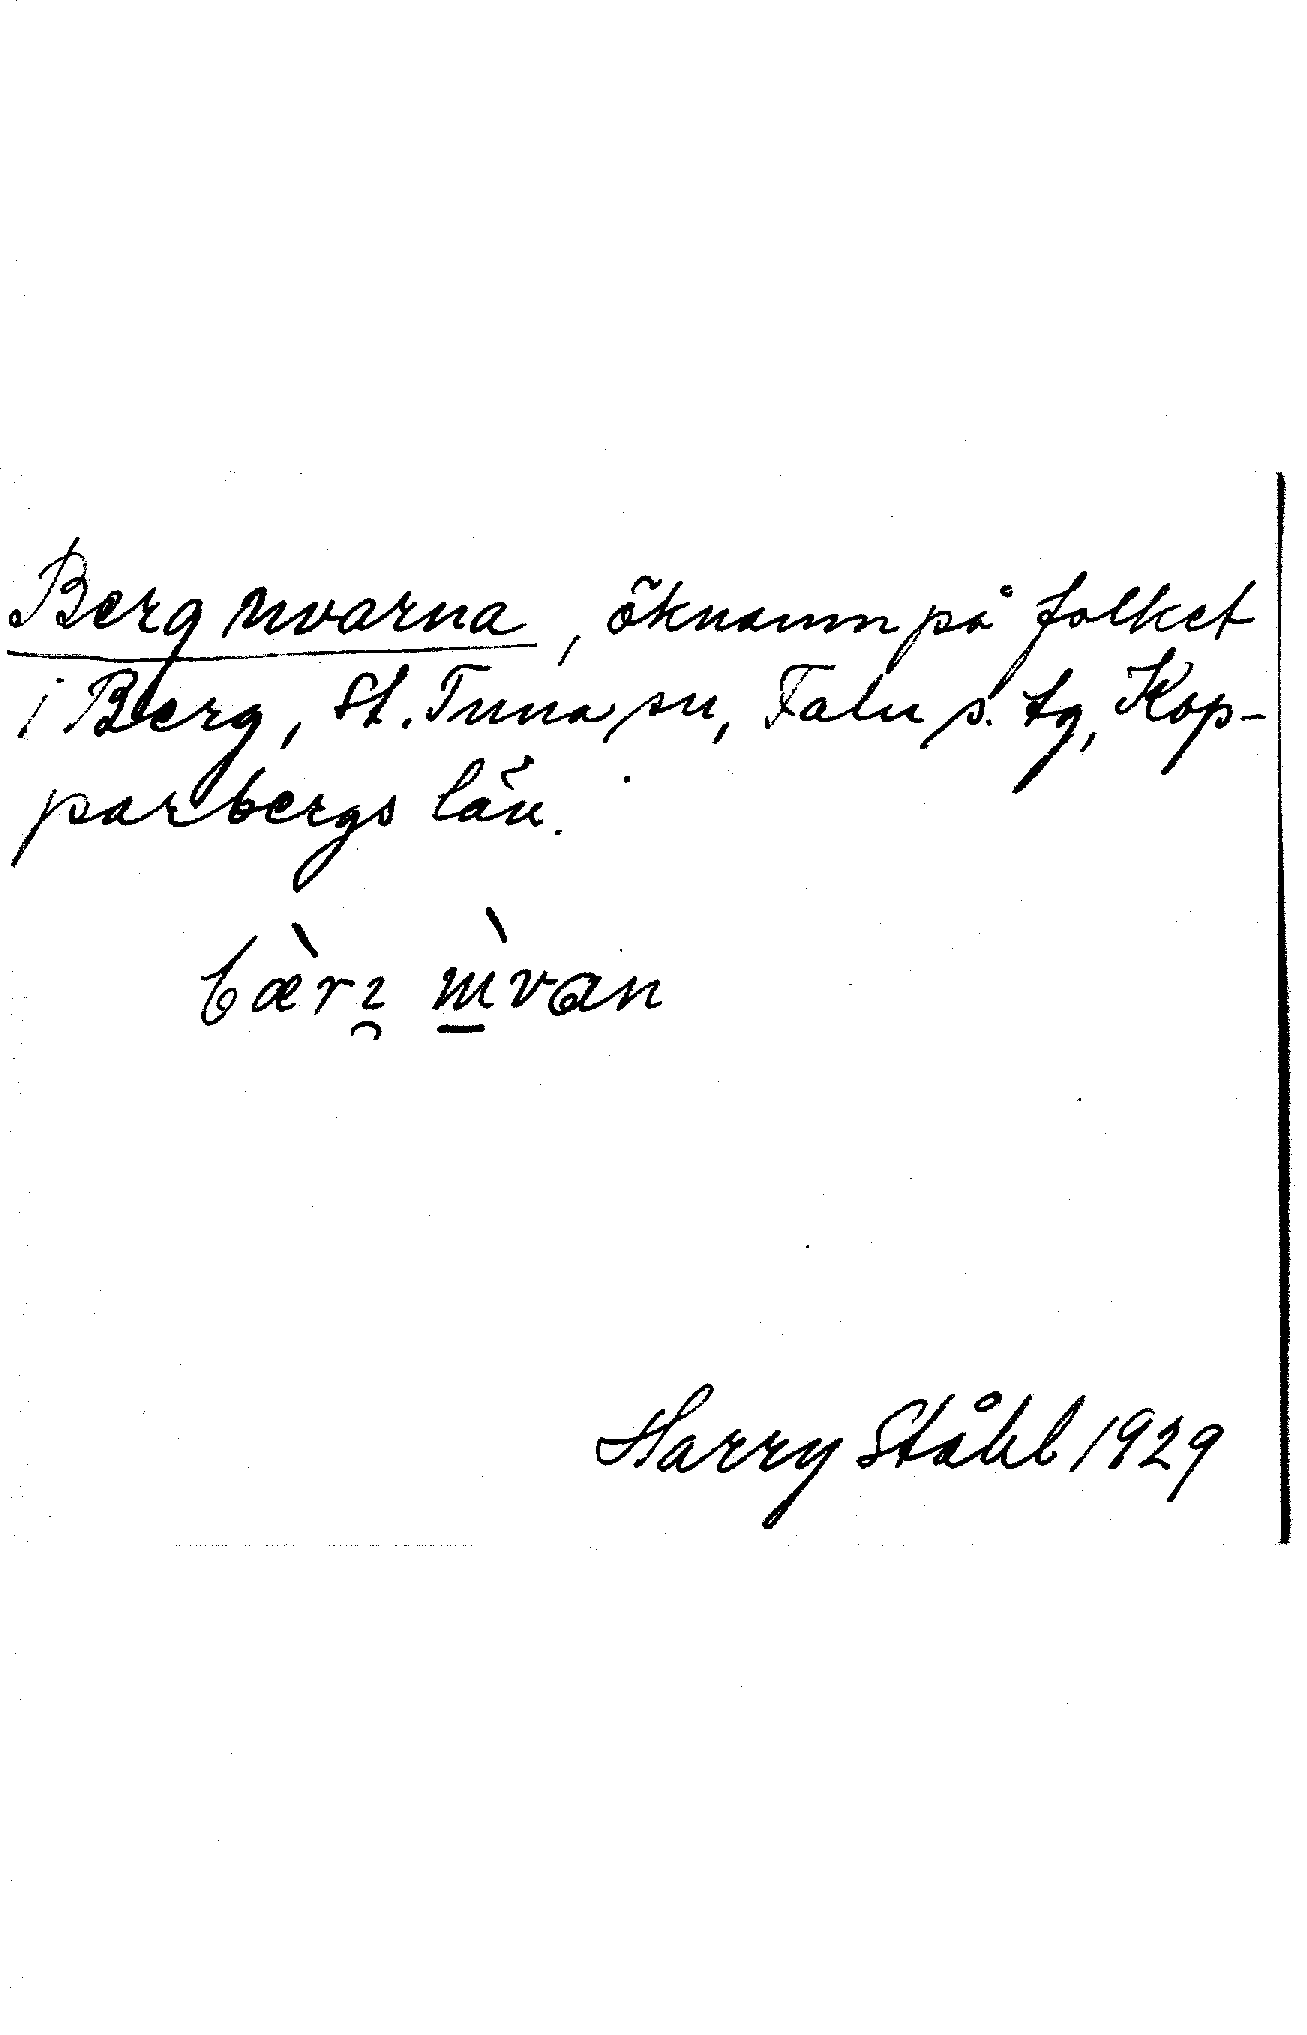 Berg uvarna, öknamn på folket
i Berg, St. Tuna sn, Falu s. tg, Kop-
parbergs län.
Harry Ståhl 1929